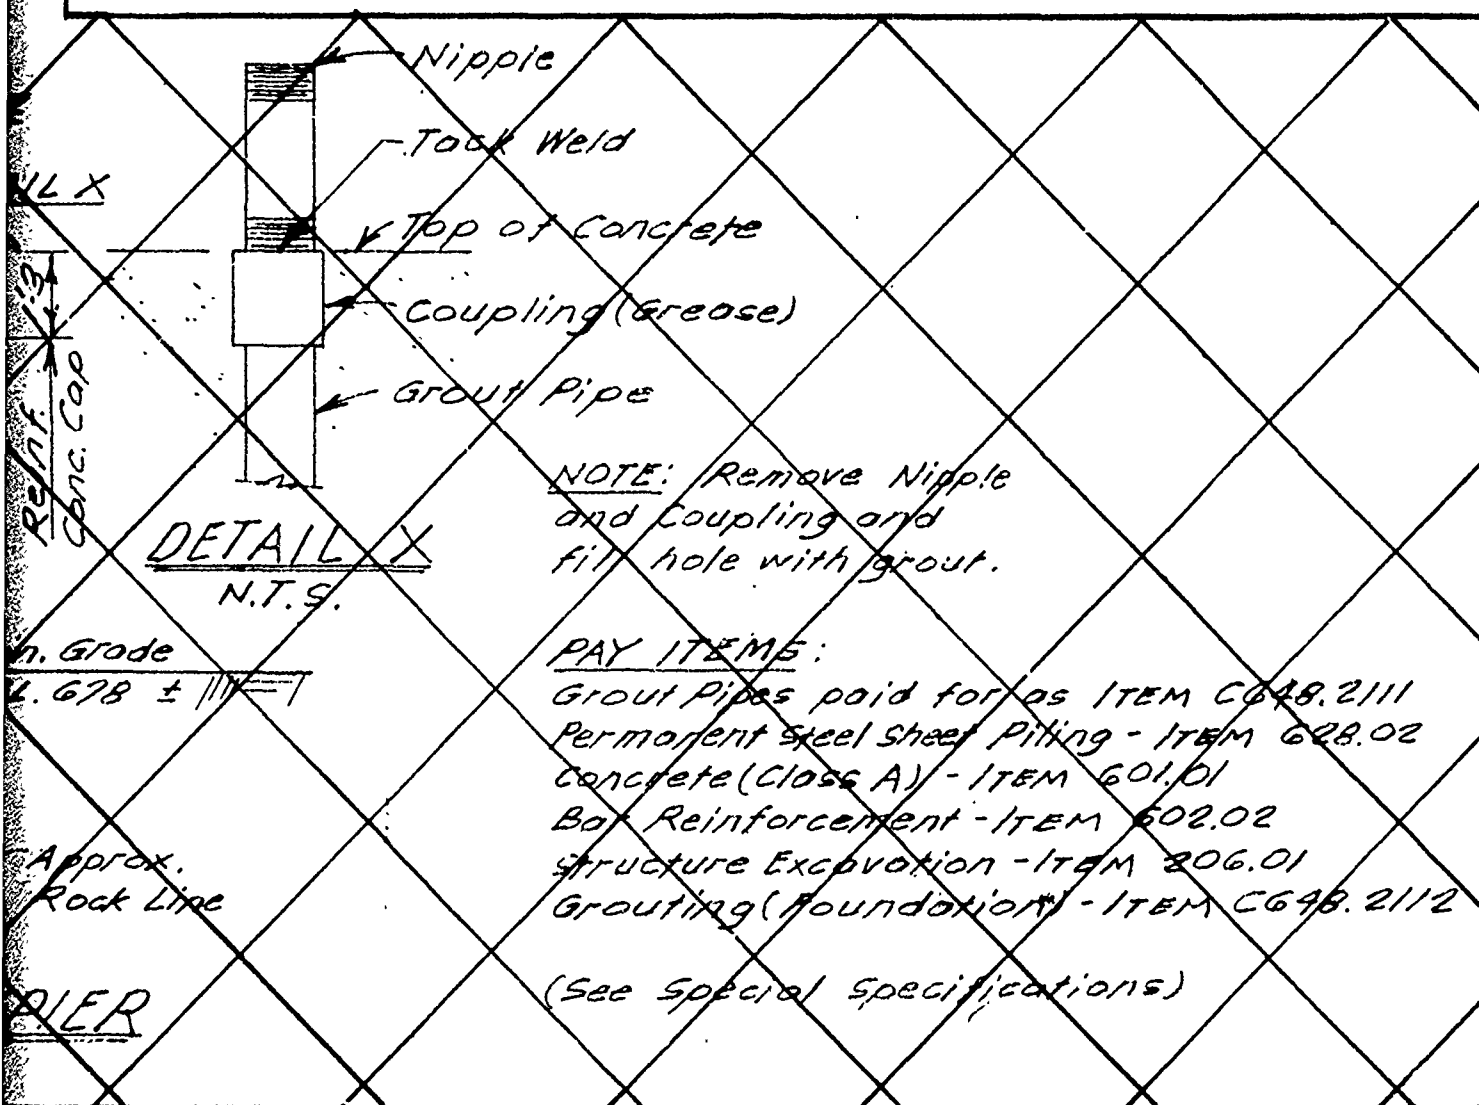 Nipple
Tack Weld
IL X
Top of Concrete
Coupling (Grease)
Grout Pipe
Reinf.
Conc. Cap
NOTE: Remove Nipple
and Coupling and
fill hole with grout.
DETAIL X
N.T.S.
n. Grade
678 ±
PAY ITEMS:
Grout Pipes paid for as ITEM C648.2111
Permanent Steel Sheet Piling - ITEM 628.02
Concrete (Class A) - ITEM 601.01
Bar Reinforcement - ITEM 602.02
Structure Excavation - ITEM 206.01
Grouting (Foundation) - ITEM C648.2112
Approx.
Rock Line
(See Special Specifications)
PIER